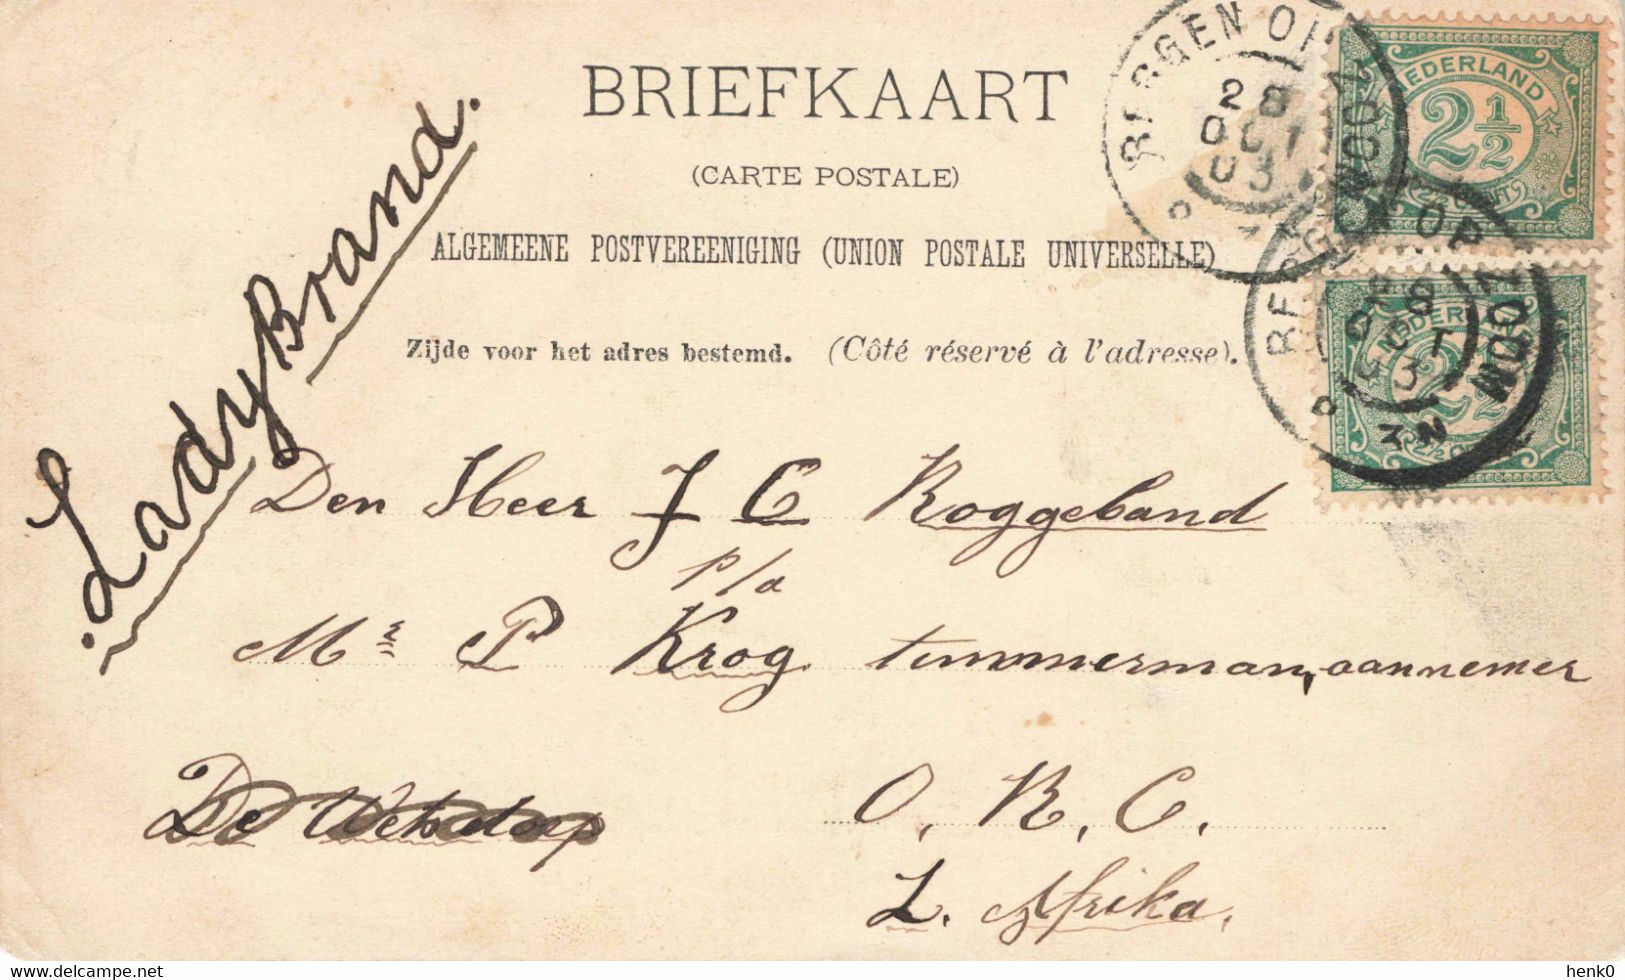 BRIEFKAART
(CARTE POSTALE)
ALGEMEENE POSTVEREENIGING (UNION POSTALE UNIVERSELLE)
Zijde voor het adres bestemd. (Côté réservé à l'adresse).
BERGEN OP ZOOM
28
OCT
03
NEDERLAND
2½
BERGEN OP ZOOM
28
OCT
03
NEDERLAND
2½
LadyBrand.
Den Heer J C Roggeband
p/a
Mr P Krog timmerman, aannemer
De Wetsdorp
O. R. C.
Z. Afrika.
www.delcampe.net
henk0